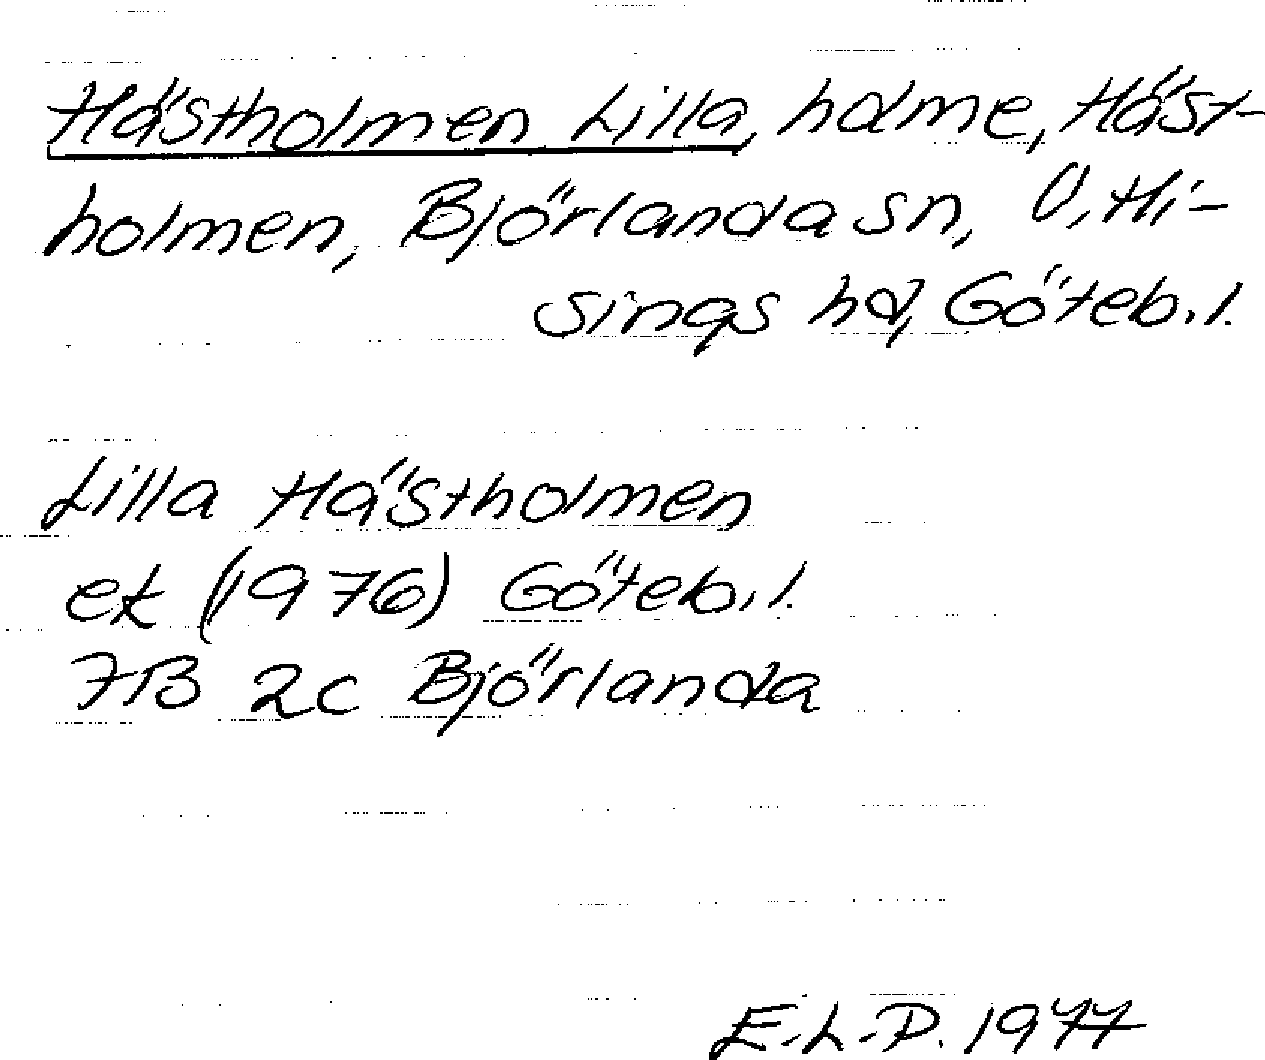 Hästholmen Lilla, holme, Häst-
holmen, Björlanda sn, V. Hi-
sings hd, Göteb. l.
Lilla Hästholmen
ek (1976) Göteb. l.
7B 2c Björlanda
E.L-D. 1977